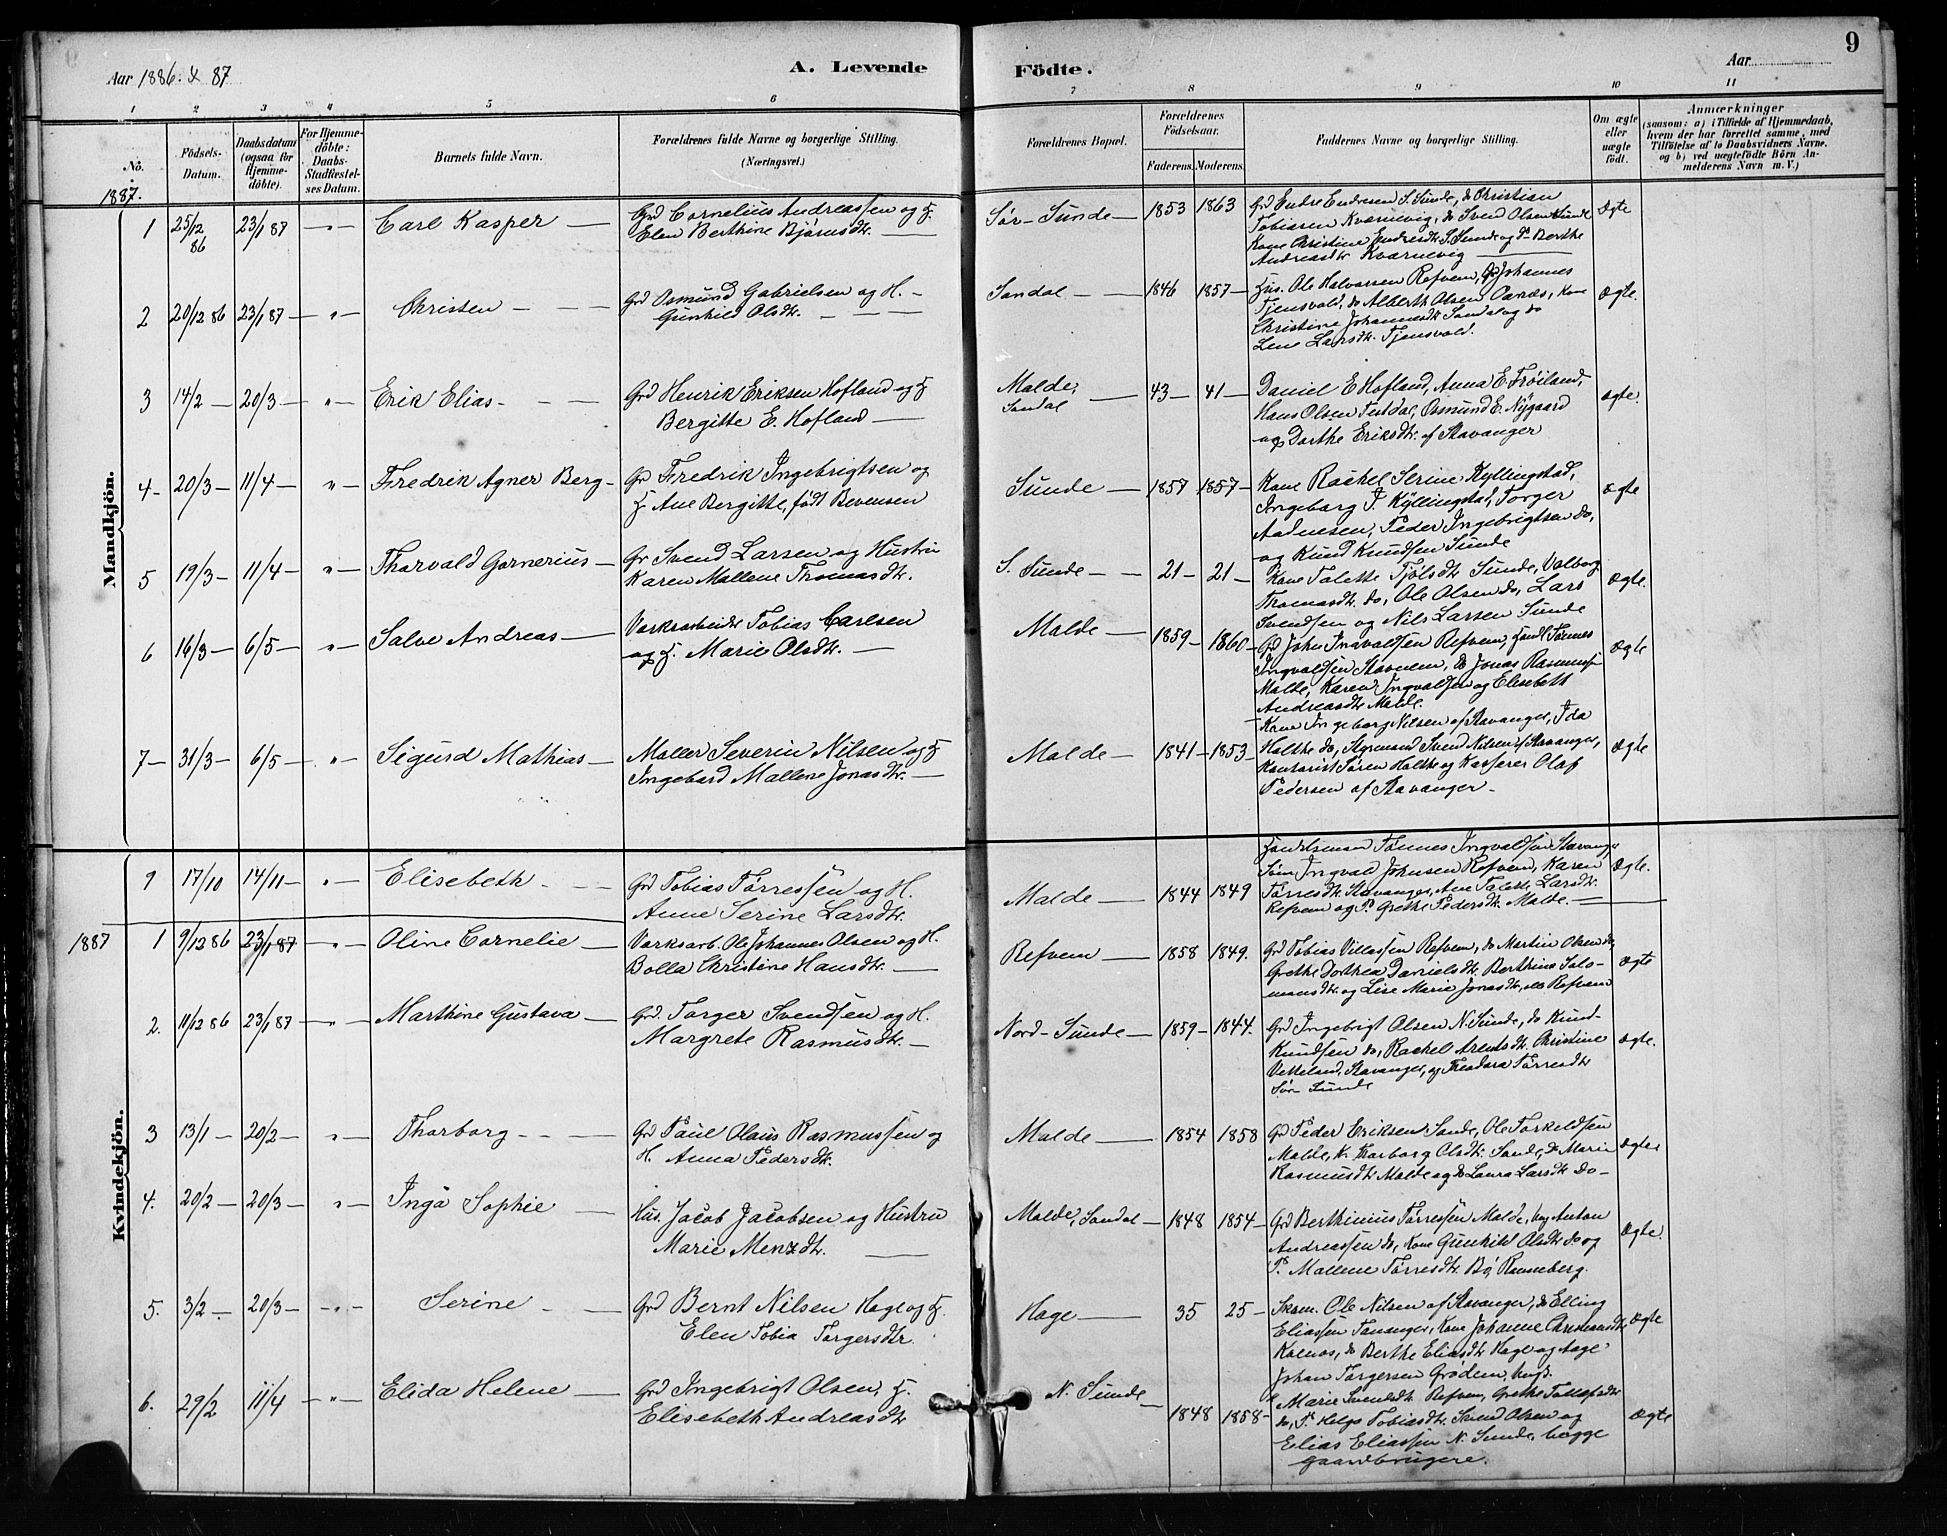 9
Aar 1886 & 87
A. Levende
Födte.
Aar
1 2 3 4 5 6 7 8 9 10 11
No.
Födsels-Datum.
Daabsdatum (ogsaa for Hjemme-döbte).
For Hjemme-döbte: Daabs-Stadfæstel-ses Datum.
Barnets fulde Navn.
Forældrenes fulde Navne og borgerlige Stilling.
(Næringsvei.)
Forældrenes Bopæl.
Forældrenes Födselsaar.
Faderens. Moderens.
Faddernes Navne og borgerlige Stilling.
Om ægte eller uægte födt.
Anmærkninger
(saasom: a) i Tilfælde af Hjemmedaab, hvem der har forrettet samme, med Tilföielse af to Daabsvidners Navne. og b) ved uægtefödte Börn An-melderens Navn m. V.)
1887.
Mandkjön.
1 25/12 86 23/1 87 Carl Kasper
Grd Cornelius Andreassen og H.
Elen Berthine Bjørnsdtr.
Sør-Sunde 1853 1863
Grd Endre Endresen S. Sunde, do Christian
Tobiasen Kværnevig, do Svend Olsen Sunde
Kone Christine Endresdtr S. Sunde og P. Berthe
Andreasdtr Kværnevig
Ægte
2 20/12 86 23/1 87 " Christen
Grd Osmund Gabrielsen og H.
Gunhild Olsdtr.
Sandal 1846 1857
Hus. Ole Halvorsen Refvem, Grd Johannes
Tjensvold, do Albert Olsen, Kone
Christine Johannesdtr Sandal og do
Lene Larsdtr. Tjensvold.
Ægte.
3 14/2 20/3 " Erik Elias
Grd Henrik Eriksen Hofland og H
Bergitte E. Hofland
Malde, Sandal 43 41
Daniel E Hofland, Anna E. Frøiland,
Hans Olsen, Osmund E. Nygaard
og Dorthe Eriksdtr. af Stavanger
ægte.
4 20/3 11/4 " Fredrik Agner Berg
Gr Fredrik Ingebrigtsen og
H. Ane Bergitte, født Bevensen
Sunde 1857 1857
Kone Rachel Serine Kyllingstad,
Ingeborg T. Kyllingstad, Torger
Aadnesen, Peder Ingebrigtsen do,
og Knud Knudsen Sunde
ægte
5 19/3 11/4 " Thorvald Gornerius
Gr Svend Larsen og Hustru
Karen Mallene Thomasdtr.
S. Sunde 21 21
Kone Talette Tjølsdtr Sunde, Valborg
Thomasdtr. do, Ole Olsen do, Lars
Svendsen og Nils Larsen Sunde
Ægte.
6 16/3 6/5 " Salve Andreas
Værksarbeider Tobias Carlsen
og H. Marie Olsdtr.
Malde 1859 1860
Grd John Ingvaldsen Refvem, Handl Tønnes
Ingvaldsen Stavnem, do Jonas Rasmussen
Malde, Karen Ingvaldsen og Elisebeth
Andreasdtr Malde.
Ægte
7 31/3 6/5 " Sigurd Mathias
Møller Severin Nilsen og H
Ingebord Mallene Jonasdtr.
Malde 1841 1853
Kone Ingeborg Nilsen af Stavanger, Ida
Holthe do, Styrmand Svend Nilsen af Stavanger,
Kontorist Søren Holthe og Kasserer Olaf
Pedersen af Stavanger
Ægte
Kvindekjön.
9 17/10 14/11 " Elisebeth
Grd Tobias Tørressen og H.
Anne Serine Larsdtr.
Malde 1844 1849
Handelsmand Tønnes Ingvaldsen Stavanger
Søn Ingvald Johnsen Refvem, Karen
Tørresdtr. Stavanger, Ane Talett. Larsdtr.
Refvem og P. Grethe Pedersdtr. Malde.
Ægte.
1887
1 9/12 86 23/1 87 " Oline Cornelie
Værksarb. Ole Johannes Olsen og H.
Bolla Christine Hansdtr.
Refvem 1858 1849.
Grd Tobias Villassen Refvem, do Martin Olsen do,
Grethe Dorthea Danielsdtr. Berthine Salo-
monsdtr. og Lise Marie Jonasdtr, alle Refvem
Ægte
2. 11/12 86 23/1 87 " Marthine Gustava
Grd. Torger Svendsen og H.
Margrete Rasmusdtr.
Nord-Sunde 1859 1844.
Grd Ingebrigt Olsen N. Sunde, do Knud
Knudsen do, Rachel Arentsdtr. Christine
Vetteland, Stavanger, og Theodora Tørresdtr
Sør Sunde
Ægte.
3 13/1 20/2 " Thorborg
Grd Paul Olaus Rasmussen og
H. Anna Pedersdtr.
Malde 1854 1858
Grd Peder Eriksen Sande, Ole Torkildsen
Malde, K. Thorborg Olsdtr. Sande, do Marie
Rasmusdtr Malde og do Laura Larsdtr do
Ægte
4. 20/2 20/3 " Inga Sophie
Hus. Jacob Jacobsen og Hustru
Marie Menzdtr.
Malde, Sandal 1848 1854
Grd Berthinius Tørressen Malde, ung Anton
Andreassen do, Kone Gunhild Olsdtr do og
P. Mallene Tørresdtr. Bø, Ranneberg.
Ægte.
5. 3/2 20/3 " Serine
Grd Bernt Nilsen Hage og H.
Elen Tobia Torgersdtr.
Hage 35 25
Skom. Ole Nilsen af Stavanger, do Elling
Eliassen Tananger, Kone Johanne Christiansdtr
Kolnos, do Berthe Eliasdtr Hage og Aage
Johan Torgersen Grødem, ungk.
Ægte
6. 29/2 11/4 " Elida Helene
Grd Ingebrigt Olsen, H.
Elisebeth Andreasdtr
N. Sunde 1848 1858
Marie Svendsdtr Refvem, Grethe Tollefsdtr
do, P. Helga Tobiasdtr. Svend Olsen og
Elias Eliassen N. Sunde, begge
gaardbrugere.
Ægte